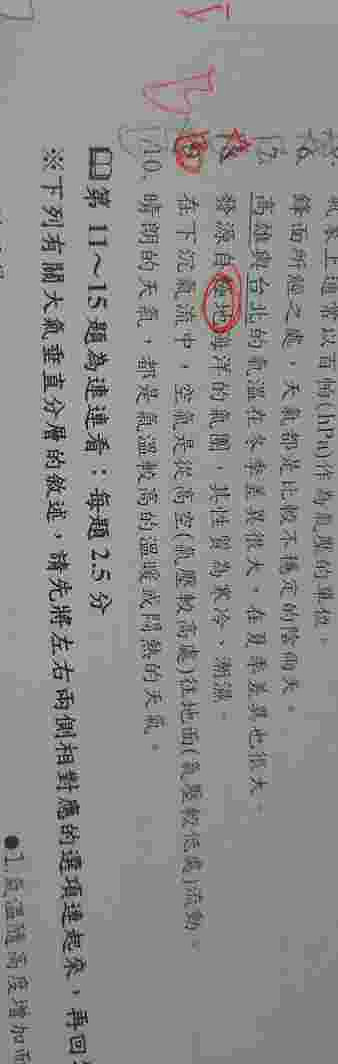 氣象上通常以百帕(hPa)作為氣壓的單位。
鋒面所經之處，天氣都是比較不穩定的陰雨天。
高雄與台北的氣溫在冬季差異很大，在夏季差異也很大。
發源自極地海洋的氣團，其性質為寒冷、潮濕。
在下沉氣流中，空氣是從高空(氣壓較高處)往地面(氣壓較低處)流動。
10. 晴朗的天氣，都是氣溫較高的溫暖或悶熱的天氣。
第 11～15 題為連連看：每題 2.5 分
※下列有關大氣垂直分層的敘述，請先將左右兩側相對應的選項連起來，再回
●1.氣溫隨高度增加而